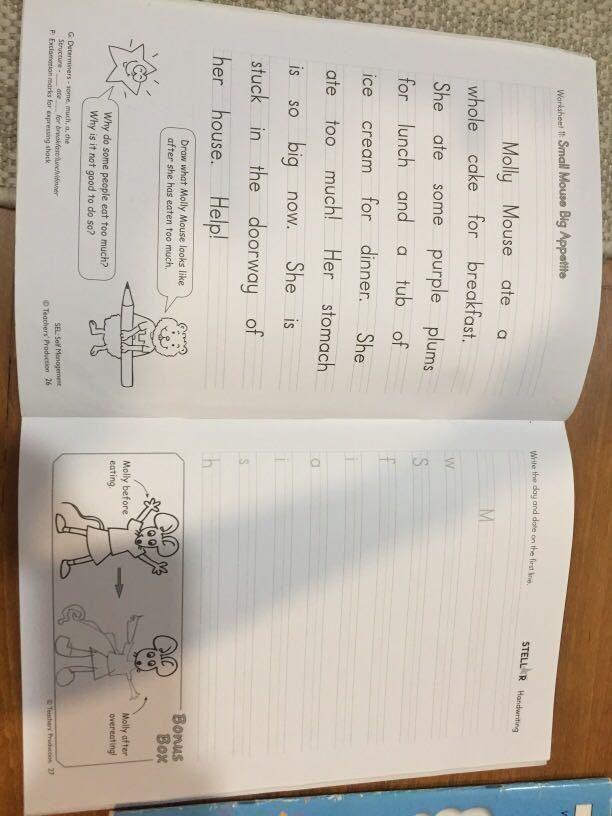 Worksheet 11: Small Mouse Big Appetite
Molly Mouse ate a
whole cake for breakfast.
She ate some purple plums
for lunch and a tub of
ice cream for dinner. She
ate too much! Her stomach
is so big now. She is
stuck in the doorway of
her house. Help!
Draw what Molly Mouse looks like
after she has eaten too much.
Why do some people eat too much?
Why is it not good to do so?
G: Determiners - some, much, a, the
Structure - ___ ate ___ for breakfast/lunch/dinner
P: Exclamation marks for expressing shock
SEL: Self Management
© Teachers' Production 26
STELLAR Handwriting
Write the day and date on the first line.
M
w
S
f
i
a
i
s
h
Bonus
Box
Molly before
eating.
Molly after
overeating!
© Teachers' Production 27